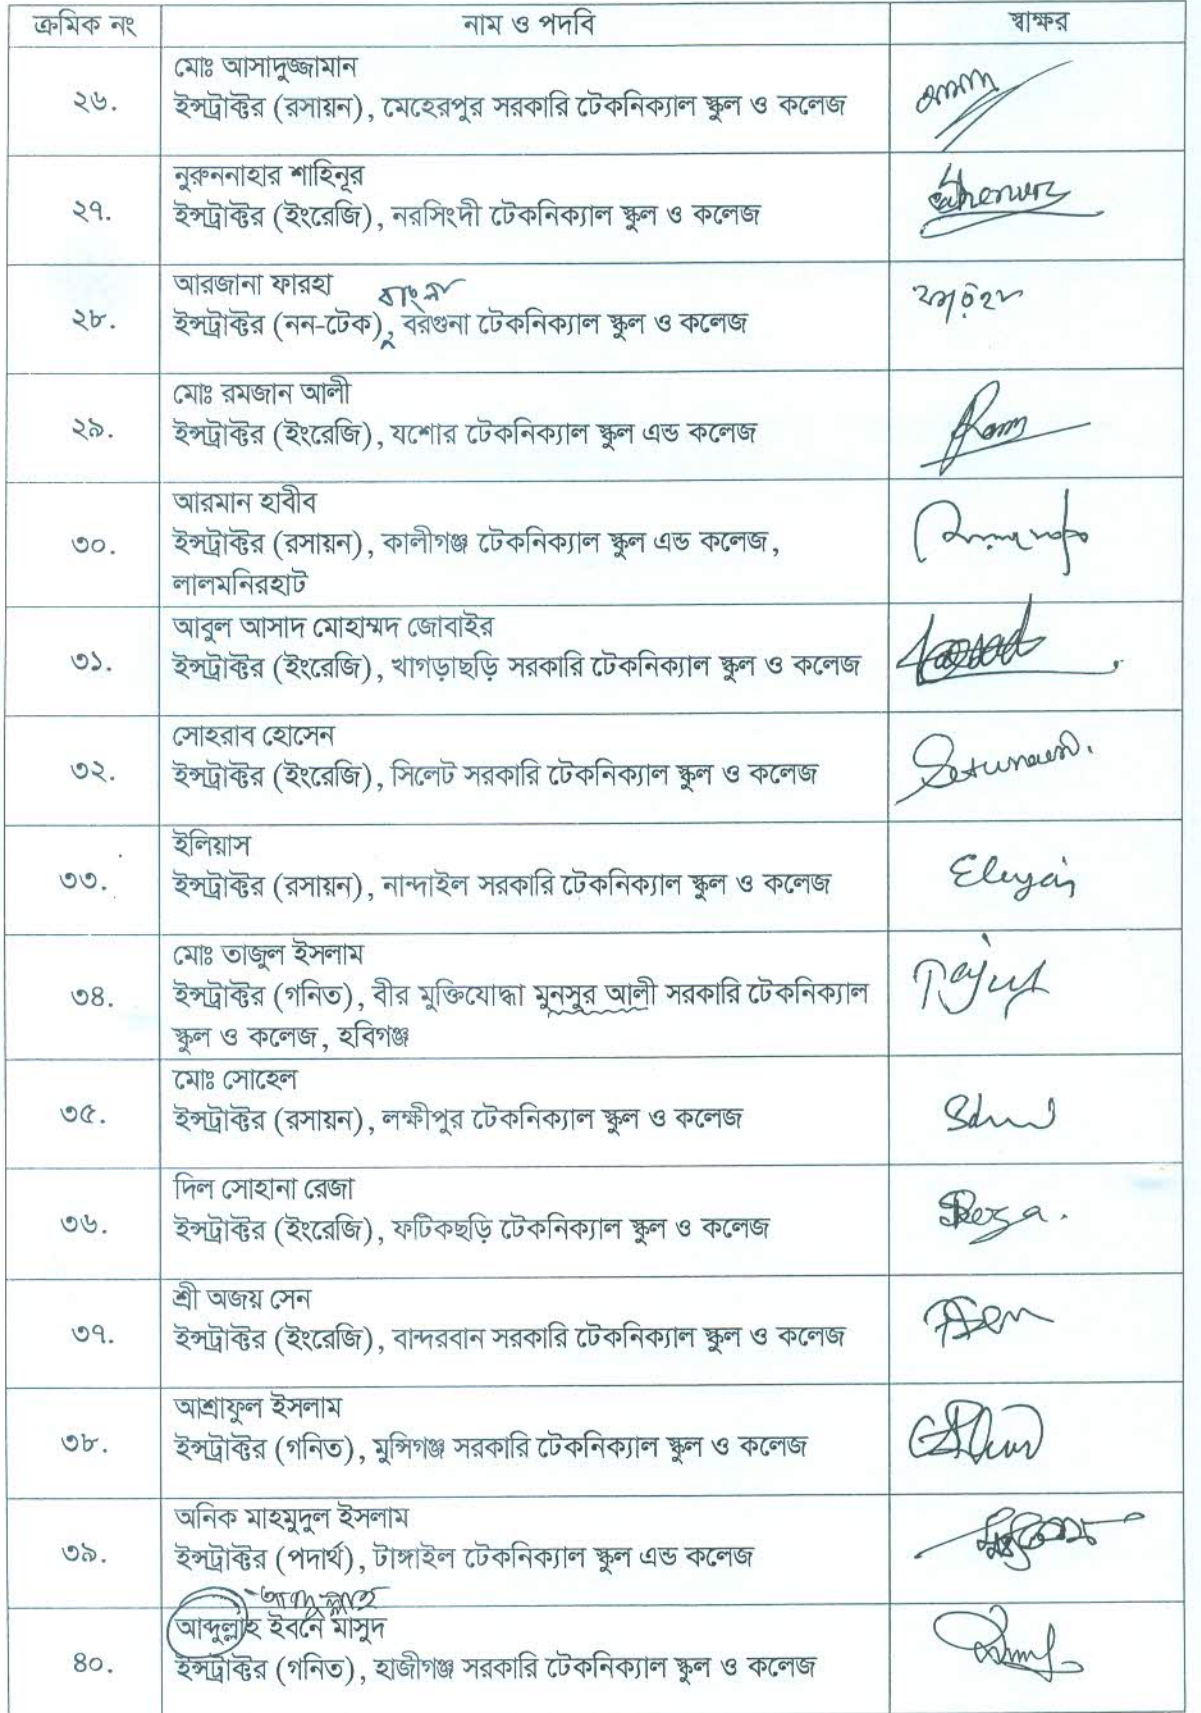 ক্রমিক নং নাম ও পদবি স্বাক্ষর
মোঃ আসাদুজ্জামান
২৬. ইন্সট্রাক্টর (রসায়ন), মেহেরপুর সরকারি টেকনিক্যাল স্কুল ও কলেজ
নুরুননাহার শাহিনূর
২৭. ইন্সট্রাক্টর (ইংরেজি), নরসিংদী টেকনিক্যাল স্কুল ও কলেজ
আরজানা ফারহা
বাংলা
২৮. ইন্সট্রাক্টর (নন-টেক), বরগুনা টেকনিক্যাল স্কুল ও কলেজ
মোঃ রমজান আলী
২৯. ইন্সট্রাক্টর (ইংরেজি), যশোর টেকনিক্যাল স্কুল এন্ড কলেজ
আরমান হাবীব
৩০. ইন্সট্রাক্টর (রসায়ন), কালীগঞ্জ টেকনিক্যাল স্কুল এন্ড কলেজ,
লালমনিরহাট
আবুল আসাদ মোহাম্মদ জোবাইর
৩১. ইন্সট্রাক্টর (ইংরেজি), খাগড়াছড়ি সরকারি টেকনিক্যাল স্কুল ও কলেজ
সোহরাব হোসেন
৩২. ইন্সট্রাক্টর (ইংরেজি), সিলেট সরকারি টেকনিক্যাল স্কুল ও কলেজ
ইলিয়াস
৩৩. ইন্সট্রাক্টর (রসায়ন), নান্দাইল সরকারি টেকনিক্যাল স্কুল ও কলেজ
মোঃ তাজুল ইসলাম
৩৪. ইন্সট্রাক্টর (গনিত), বীর মুক্তিযোদ্ধা মুনসুর আলী সরকারি টেকনিক্যাল
স্কুল ও কলেজ, হবিগঞ্জ
মোঃ সোহেল
৩৫. ইন্সট্রাক্টর (রসায়ন), লক্ষীপুর টেকনিক্যাল স্কুল ও কলেজ
দিল সোহানা রেজা
৩৬. ইন্সট্রাক্টর (ইংরেজি), ফটিকছড়ি টেকনিক্যাল স্কুল ও কলেজ Reza.
শ্রী অজয় সেন
৩৭. ইন্সট্রাক্টর (ইংরেজি), বান্দরবান সরকারি টেকনিক্যাল স্কুল ও কলেজ
আশ্রাফুল ইসলাম
৩৮. ইন্সট্রাক্টর (গনিত), মুন্সিগঞ্জ সরকারি টেকনিক্যাল স্কুল ও কলেজ
অনিক মাহমুদুল ইসলাম
৩৯. ইন্সট্রাক্টর (পদার্থ), টাঙ্গাইল টেকনিক্যাল স্কুল এন্ড কলেজ
আব্দুল্লাহ ইবনে মাসুদ
৪০. ইন্সট্রাক্টর (গনিত), হাজীগঞ্জ সরকারি টেকনিক্যাল স্কুল ও কলেজ